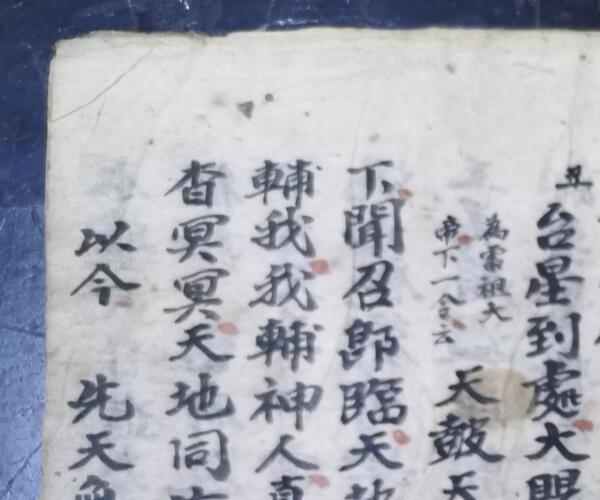 丑
台星到處大眼
為雷祖大
帝下一令云
天鼓天
下聞召即臨天
輔我我輔神人真
杳冥冥天地同
以今
先天